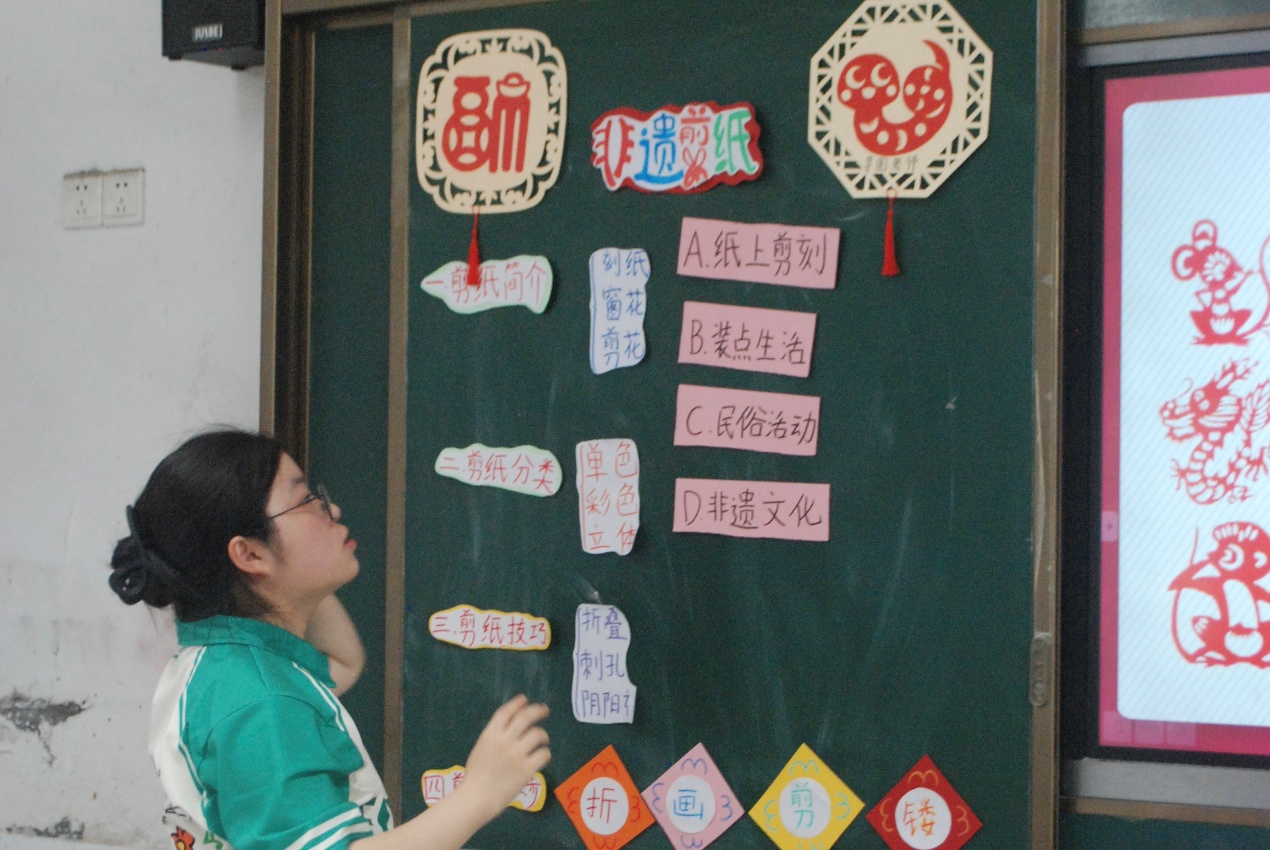 非遗剪纸
一.剪纸简介
刻纸
窗花
剪花
A.纸上剪刻
B.装点生活
C.民俗活动
D.非遗文化
二.剪纸分类
单色
彩色
立体
三.剪纸技巧
折叠
刺孔
阴阳
四.剪
折
画
剪
镂